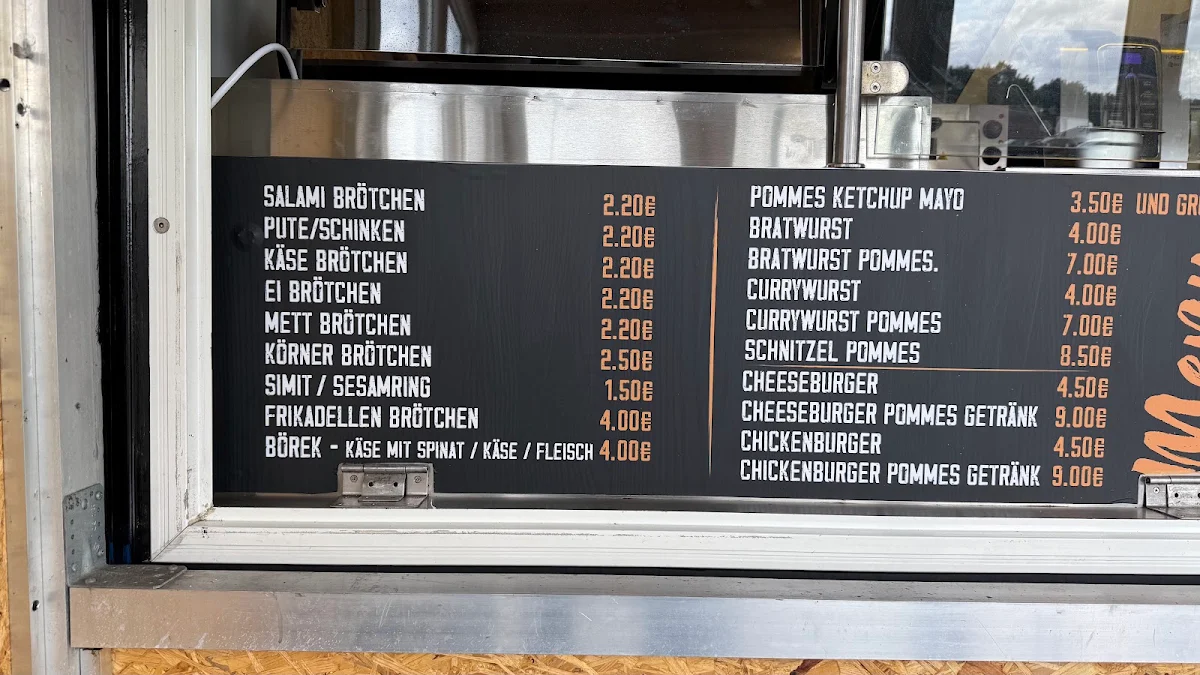 SALAMI BRÖTCHEN 2.20€
PUTE/SCHINKEN 2.20€
KÄSE BRÖTCHEN 2.20€
EI BRÖTCHEN 2.20€
METT BRÖTCHEN 2.20€
KÖRNER BRÖTCHEN 2.50€
SIMIT / SESAMRING 1.50€
FRIKADELLEN BRÖTCHEN 4.00€
BÖREK - KÄSE MIT SPINAT / KÄSE / FLEISCH 4.00€
POMMES KETCHUP MAYO 3.50€ UND GR
BRATWURST 4.00€
BRATWURST POMMES. 7.00€
CURRYWURST 4.00€
CURRYWURST POMMES 7.00€
SCHNITZEL POMMES 8.50€
CHEESEBURGER 4.50€
CHEESEBURGER POMMES GETRÄNK 9.00€
CHICKENBURGER 4.50€
CHICKENBURGER POMMES GETRÄNK 9.00€
Menu